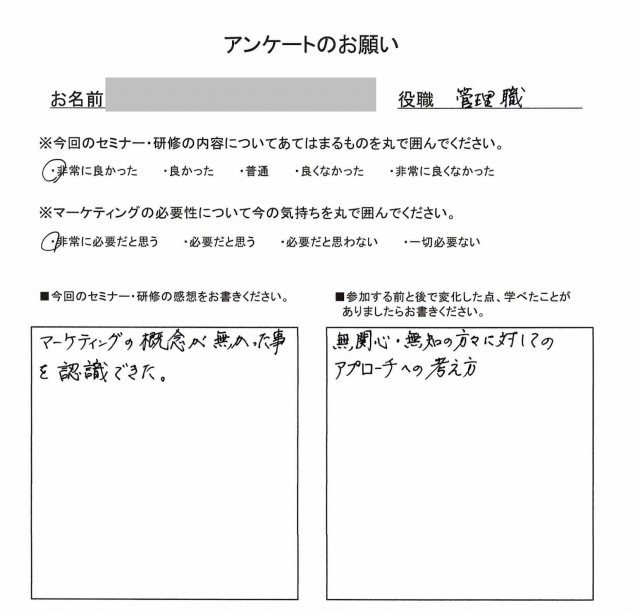 アンケートのお願い
お名前 役職 管理職
※今回のセミナー・研修の内容についてあてはまるものを丸で囲んでください。
・非常に良かった ・良かった ・普通 ・良くなかった ・非常に良くなかった
※マーケティングの必要性について今の気持ちを丸で囲んでください。
・非常に必要だと思う ・必要だと思う ・必要だと思わない ・一切必要ない
■今回のセミナー・研修の感想をお書きください。
マーケティングの概念が無かった事
を認識できた。
■参加する前と後で変化した点、学べたことが
ありましたらお書きください。
無関心・無知の方々に対しての
アプローチへの考え方